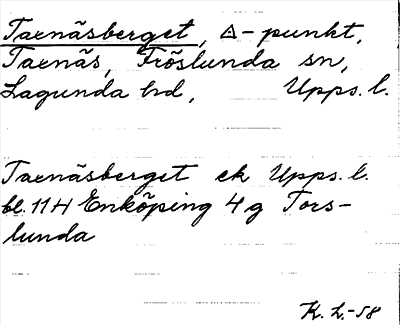 Tarnäsberget, △-punkt,
Tarnäs, Fröslunda sn,
Lagunda hd, Upps. l.
Tarnäsberget ek Upps. l.
bl. 11 H Enköping 4 g Tors-
lunda
K. L.-58